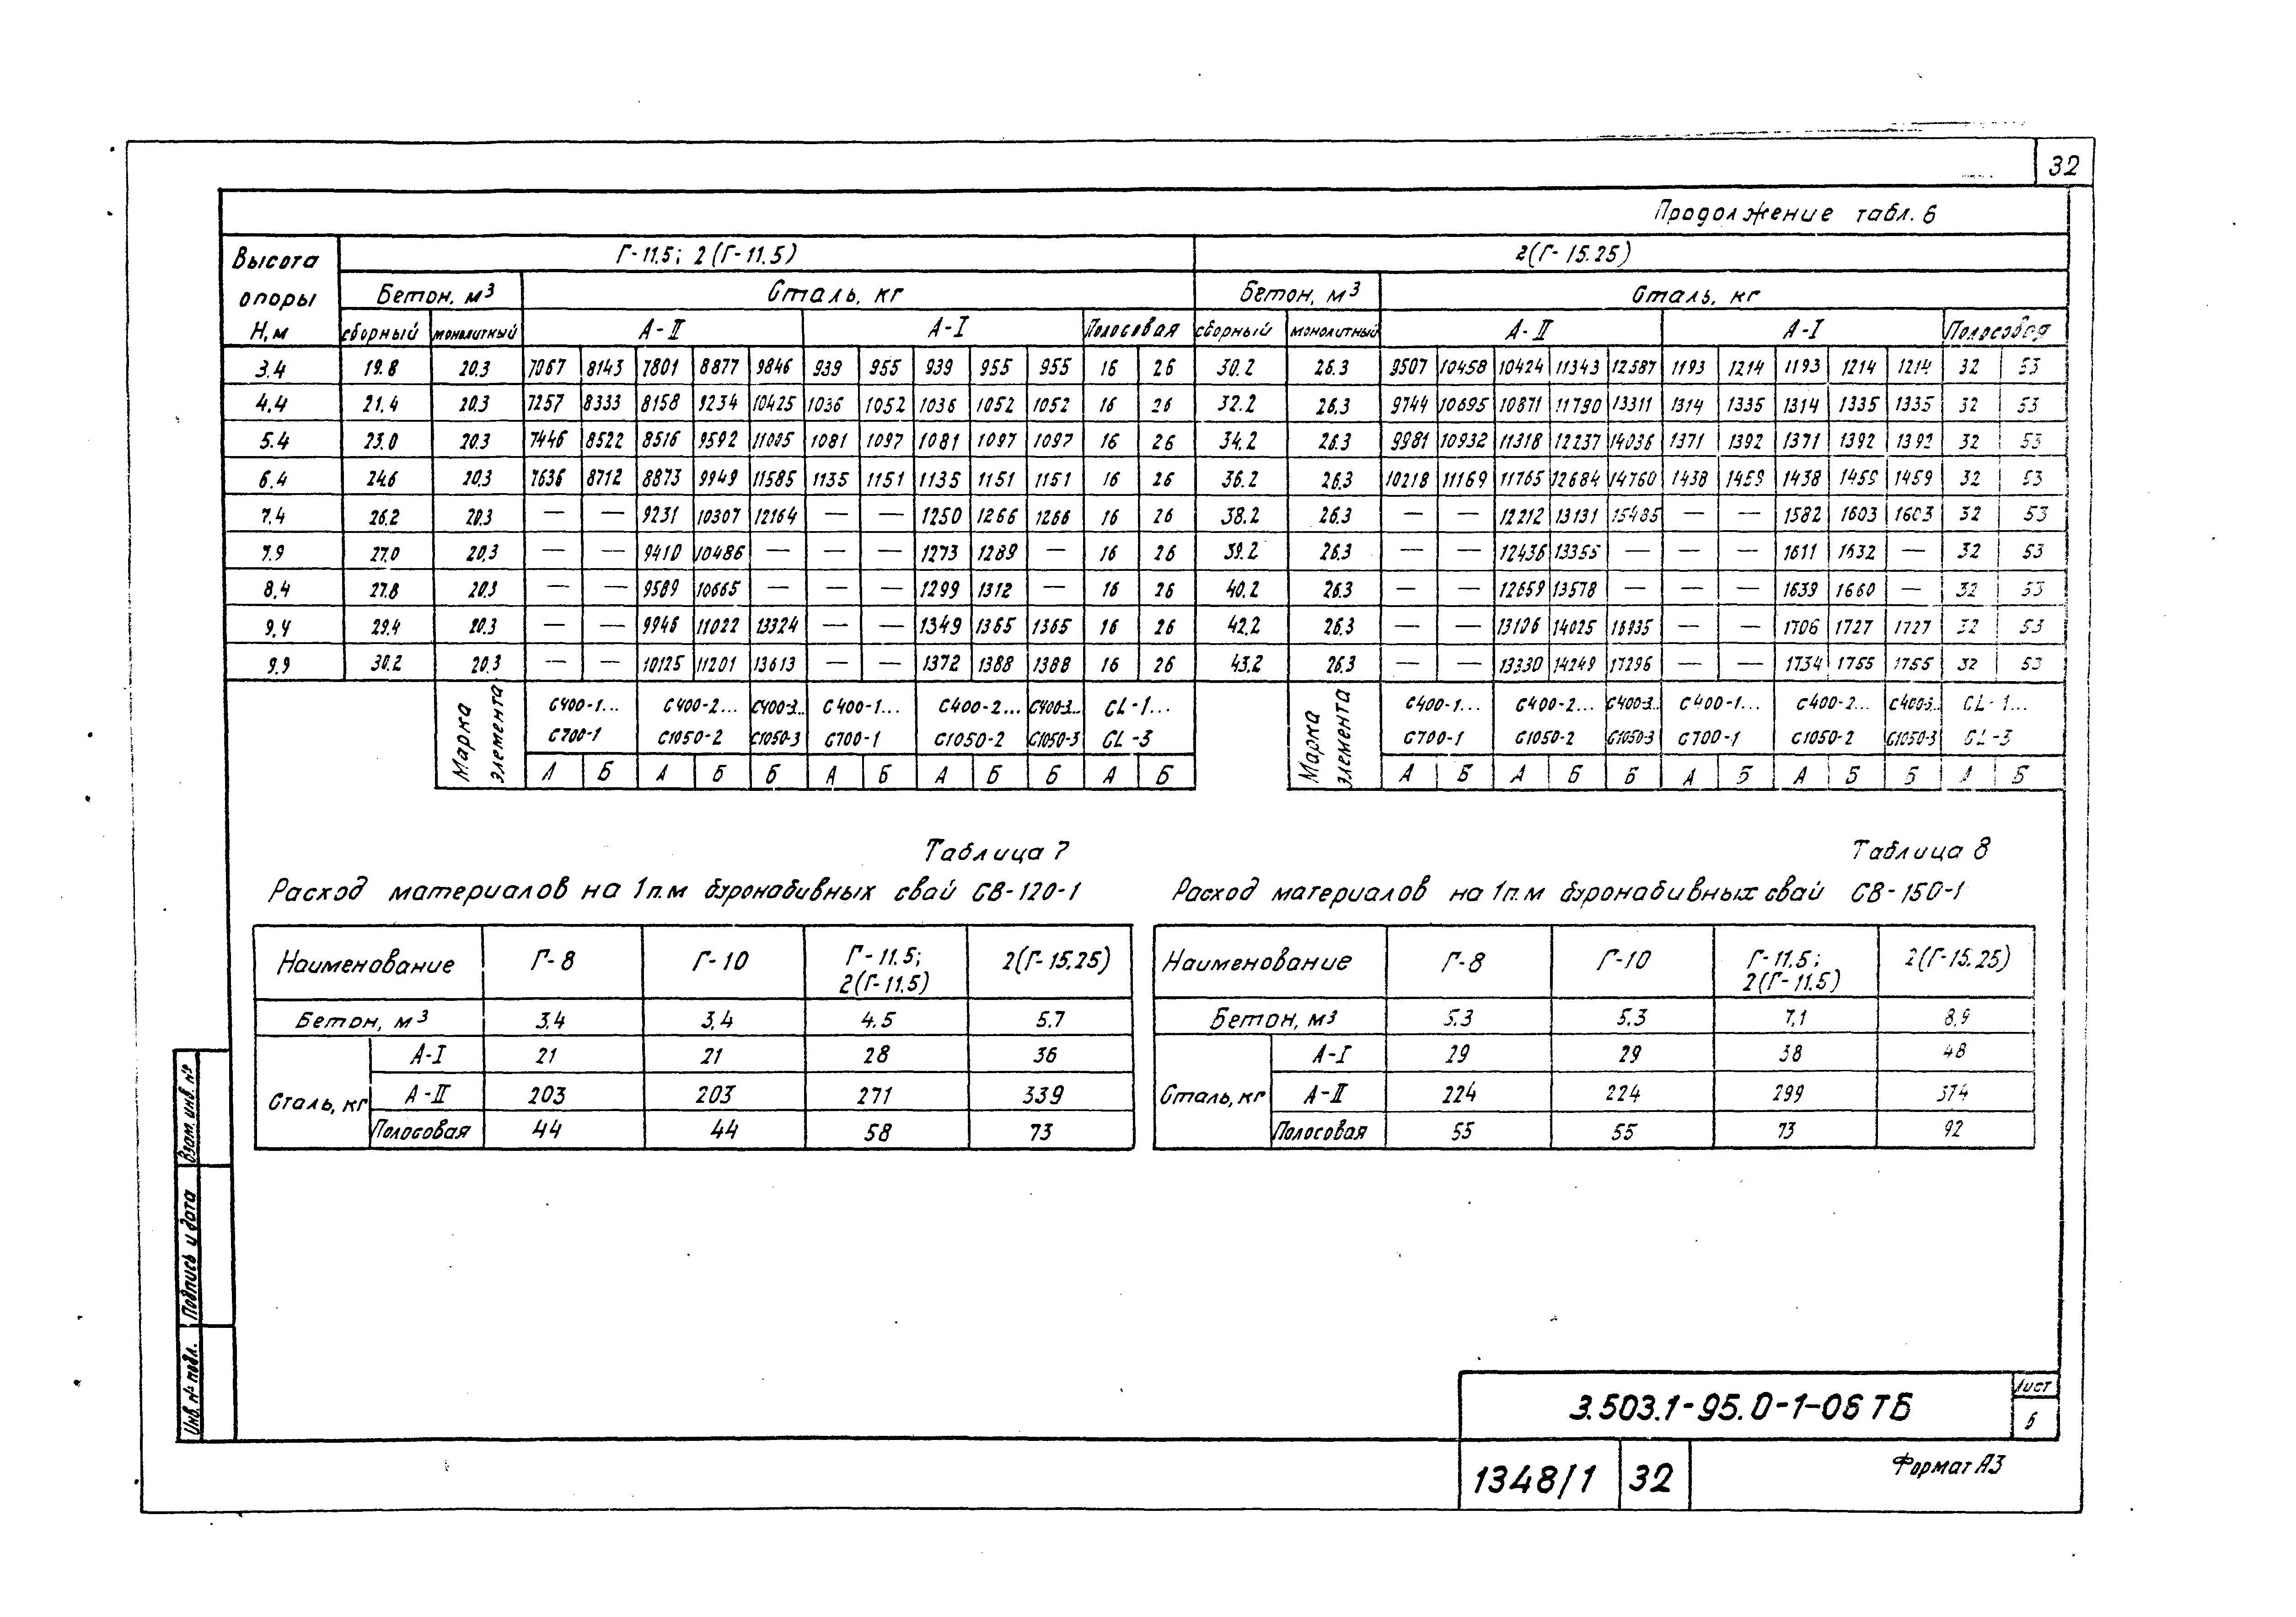 32
Продолжение табл. 6
Высота опоры Н, м | Г-11.5; 2(Г-11.5) | 2(Г-15.25)
Бетон, м³ | Сталь, кг | Бетон, м³ | Сталь, кг
сборный | монолитный | А-II | А-I | Полосовая | сборный | монолитный | А-II | А-I | Полосовая
3.4 | 19.8 | 20.3 | 7067 | 8143 | 7801 | 8877 | 9846 | 939 | 955 | 939 | 955 | 955 | 16 | 26 | 30.2 | 26.3 | 9507 | 10458 | 10424 | 11343 | 12587 | 1193 | 1214 | 1193 | 1214 | 1214 | 32 | 53
4.4 | 21.4 | 20.3 | 7257 | 8333 | 8158 | 9234 | 10425 | 1036 | 1052 | 1036 | 1052 | 1052 | 16 | 26 | 32.2 | 26.3 | 9744 | 10695 | 10871 | 11790 | 13311 | 1314 | 1335 | 1314 | 1335 | 1335 | 32 | 53
5.4 | 23.0 | 20.3 | 7446 | 8522 | 8516 | 9592 | 11005 | 1081 | 1097 | 1081 | 1097 | 1097 | 16 | 26 | 34.2 | 26.3 | 9981 | 10932 | 11318 | 12237 | 14036 | 1371 | 1392 | 1371 | 1392 | 1392 | 32 | 53
6.4 | 24.6 | 20.3 | 7636 | 8712 | 8873 | 9949 | 11585 | 1135 | 1151 | 1135 | 1151 | 1151 | 16 | 26 | 36.2 | 26.3 | 10218 | 11169 | 11765 | 12684 | 14760 | 1438 | 1459 | 1438 | 1459 | 1459 | 32 | 53
7.4 | 26.2 | 20.3 | — | — | 9231 | 10307 | 12164 | — | — | 1250 | 1266 | 1266 | 16 | 26 | 38.2 | 26.3 | — | — | 12212 | 13131 | 15485 | — | — | 1582 | 1603 | 1603 | 32 | 53
7.9 | 27.0 | 20,3 | — | — | 9410 | 10486 | — | — | — | 1273 | 1289 | — | 16 | 26 | 39.2 | 26.3 | — | — | 12436 | 13355 | — | — | — | 1611 | 1632 | — | 32 | 53
8,4 | 27.8 | 20.3 | — | — | 9589 | 10665 | — | — | — | 1299 | 1312 | — | 16 | 26 | 40.2 | 26.3 | — | — | 12659 | 13578 | — | — | — | 1639 | 1660 | — | 32 | 53
9,4 | 29.4 | 20.3 | — | — | 9946 | 11022 | 13324 | — | — | 1349 | 1365 | 1365 | 16 | 26 | 42.2 | 26.3 | — | — | 13106 | 14025 | 16935 | — | — | 1706 | 1727 | 1727 | 32 | 53
9.9 | 30.2 | 20.3 | — | — | 10125 | 11201 | 13613 | — | — | 1372 | 1388 | 1388 | 16 | 26 | 43.2 | 26.3 | — | — | 13330 | 14249 | 17296 | — | — | 1734 | 1755 | 1755 | 32 | 53
Марка элемента | С400-1... С700-1 | С400-2... С1050-2 | С400-3.. С1050-3 | С400-1... С700-1 | С400-2... С1050-2 | С400-3.. С1050-3 | СL-1... СL-3 | Марка элемента | С400-1... С700-1 | С400-2... С1050-2 | С400-3.. С1050-3 | С400-1... С700-1 | С400-2... С1050-2 | С400-3.. С1050-3 | СL-1... СL-3
А | Б | А | Б | Б | А | Б | А | Б | Б | А | Б | А | Б | А | Б | Б | А | Б | А | Б | Б | А | Б
Таблица 7
Расход материалов на 1п.м буронабивных свай СВ-120-1
Наименование | Г-8 | Г-10 | Г-11.5; 2(Г-11.5) | 2(Г-15.25)
Бетон, м³ | 3.4 | 3.4 | 4.5 | 5.7
Сталь, кг | А-I | 21 | 21 | 28 | 36
А-II | 203 | 203 | 271 | 339
Полосовая | 44 | 44 | 58 | 73
Таблица 8
Расход материалов на 1п.м буронабивных свай СВ-150-1
Наименование | Г-8 | Г-10 | Г-11.5; 2(Г-11.5) | 2(Г-15.25)
Бетон, м³ | 5.3 | 5.3 | 7,1 | 8,9
Сталь, кг | А-I | 29 | 29 | 38 | 48
А-II | 224 | 224 | 299 | 374
Полосовая | 55 | 55 | 73 | 92
Взам. инв. №
Подпись и дата
Инв. № подл.
3.503.1-95.0-1-06 ТБ
Лист
6
1348/1
32
Формат А3